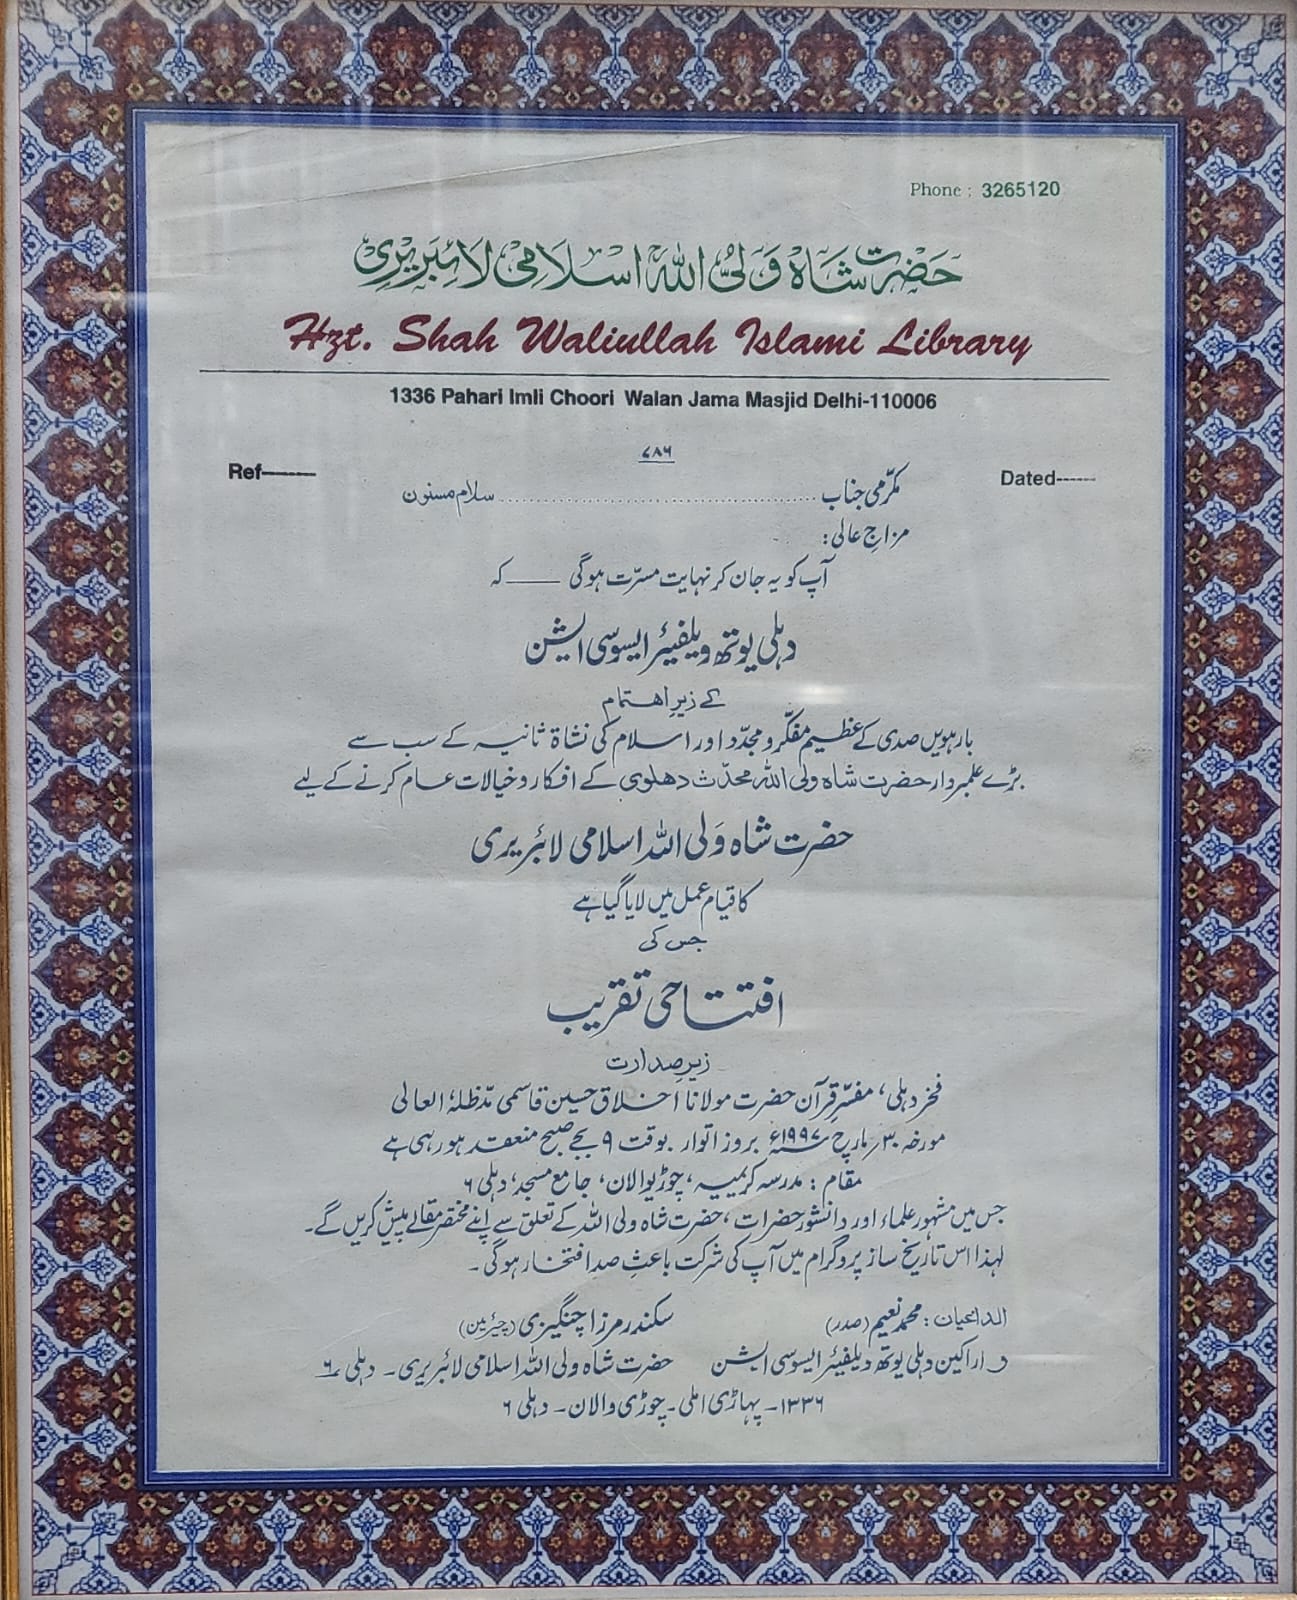 Phone : 3265120
حضرت شاہ ولی اللہ اسلامی لائبریری
Hzt. Shah Waliullah Islami Library
1336 Pahari Imli Choori Walan Jama Masjid Delhi-110006
۷۸۶
Ref——
Dated------
مکرّمی جناب ........................................ سلام مسنون
مزاجِ عالی:
آپ کو یہ جان کر نہایت مسرّت ہوگی ـــــــ کہ
دہلی یوتھ ویلفیئر ایسوسی ایشن
کے زیرِ اہتمام
بارہویں صدی کے عظیم مفکّر و مجدّد اور اسلام کی نشاۃ ثانیہ کے سب سے
بڑے علمبردار حضرت شاہ ولی اللہ محدّث دھلوی کے افکار و خیالات عام کرنے کے لیے
حضرت شاہ ولی اللہ اسلامی لائبریری
کا قیام عمل میں لایا گیا ہے
جس کی
افتتاحی تقریب
زیرِ صدارت
فخرِ دہلی، مفسّرِ قرآن حضرت مولانا اخلاق حسین قاسمی مدّظلہٗ العالی
مورخہ ۳۰/مارچ ۱۹۹۷ء بروز اتوار بوقت ۹ بجے صبح منعقد ہو رہی ہے
مقام : مدرسہ کریمیہ، چوڑیوالان، جامع مسجد، دہلی ۶
جس میں مشہور علماء اور دانشور حضرات، حضرت شاہ ولی اللہ کے تعلق سے اپنے مختصر مقالے پیش کریں گے۔
لہٰذا اس تاریخ ساز پروگرام میں آپ کی شرکت باعثِ صد افتخار ہوگی۔
الداعیان: محمد نعیم (صدر) سکندر مرزا چنگیزی (چیئرمین)
و اراکین دہلی یوتھ ویلفیئر ایسوسی ایشن حضرت شاہ ولی اللہ اسلامی لائبریری۔ دہلی ۶
۱۳۳۶۔ پہاڑی املی۔ چوڑی والان۔ دہلی ۶